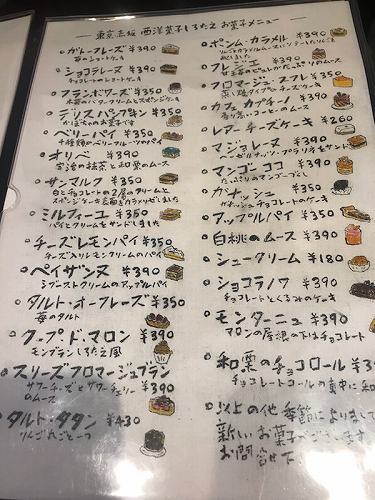 東京赤坂 西洋菓子しろたえ お菓子メニュー
ガトーフレーズ ¥390
苺のショートケーキ
ショコラレーズ ¥390
チョコレートのショートケーキ
フランボワーズ ¥350
木苺のバタークリームとスポンジケーキ
デリスパンプキン ¥350
かぼちゃのお菓子です
ベリーパイ ¥350
ベリーフルーツのパイ
オリベ ¥390
宇治の抹茶と和栗のムース
サンマルク ¥350
白とチョコレートの2層のクリームと
スポンジケーキ表面をカラメリゼしました
ミルフィーユ ¥350
パイとクリームをサンドしました
チーズレモンパイ ¥350
チーズ入りレモンクリームのパイ
ペイザンヌ ¥390
シブーストクリームのアップルパイ
タルト・オー・フレーズ ¥350
苺のタルト
クープ・ド・マロン ¥390
モンブランしろたえ風
スリーズフロマージュブラン
サワーチーズとサワーチェリー ¥390
のムース
タルト・タタン ¥430
りんごまるごと一つ
ポンム・カラメル ¥390
フレジエ ¥390
フロマージュ・スフレ ¥350
チーズケーキ
カフェカプチーノ ¥390
香り高いコーヒーのムース
レアーチーズケーキ ¥260
マジョレーヌ ¥390
ヘーゼルナッツ・プラリネをサンド
マンゴーココ ¥390
たっぷりのマンゴープリン
ガナッシュ ¥350
ガナッシュチョコレートのケーキ
アップルパイ ¥350
白桃のムース ¥390
シュークリーム ¥180
ショコラノワ ¥390
チョコレートとくるみのケーキ
モンターニュ ¥390
マロンの屋根の下はチョコレート
和栗のチョコロール ¥39
チョコレートロールの真中に和
以上の他季節によりまして
新しいお菓子がございます
お問合せ下